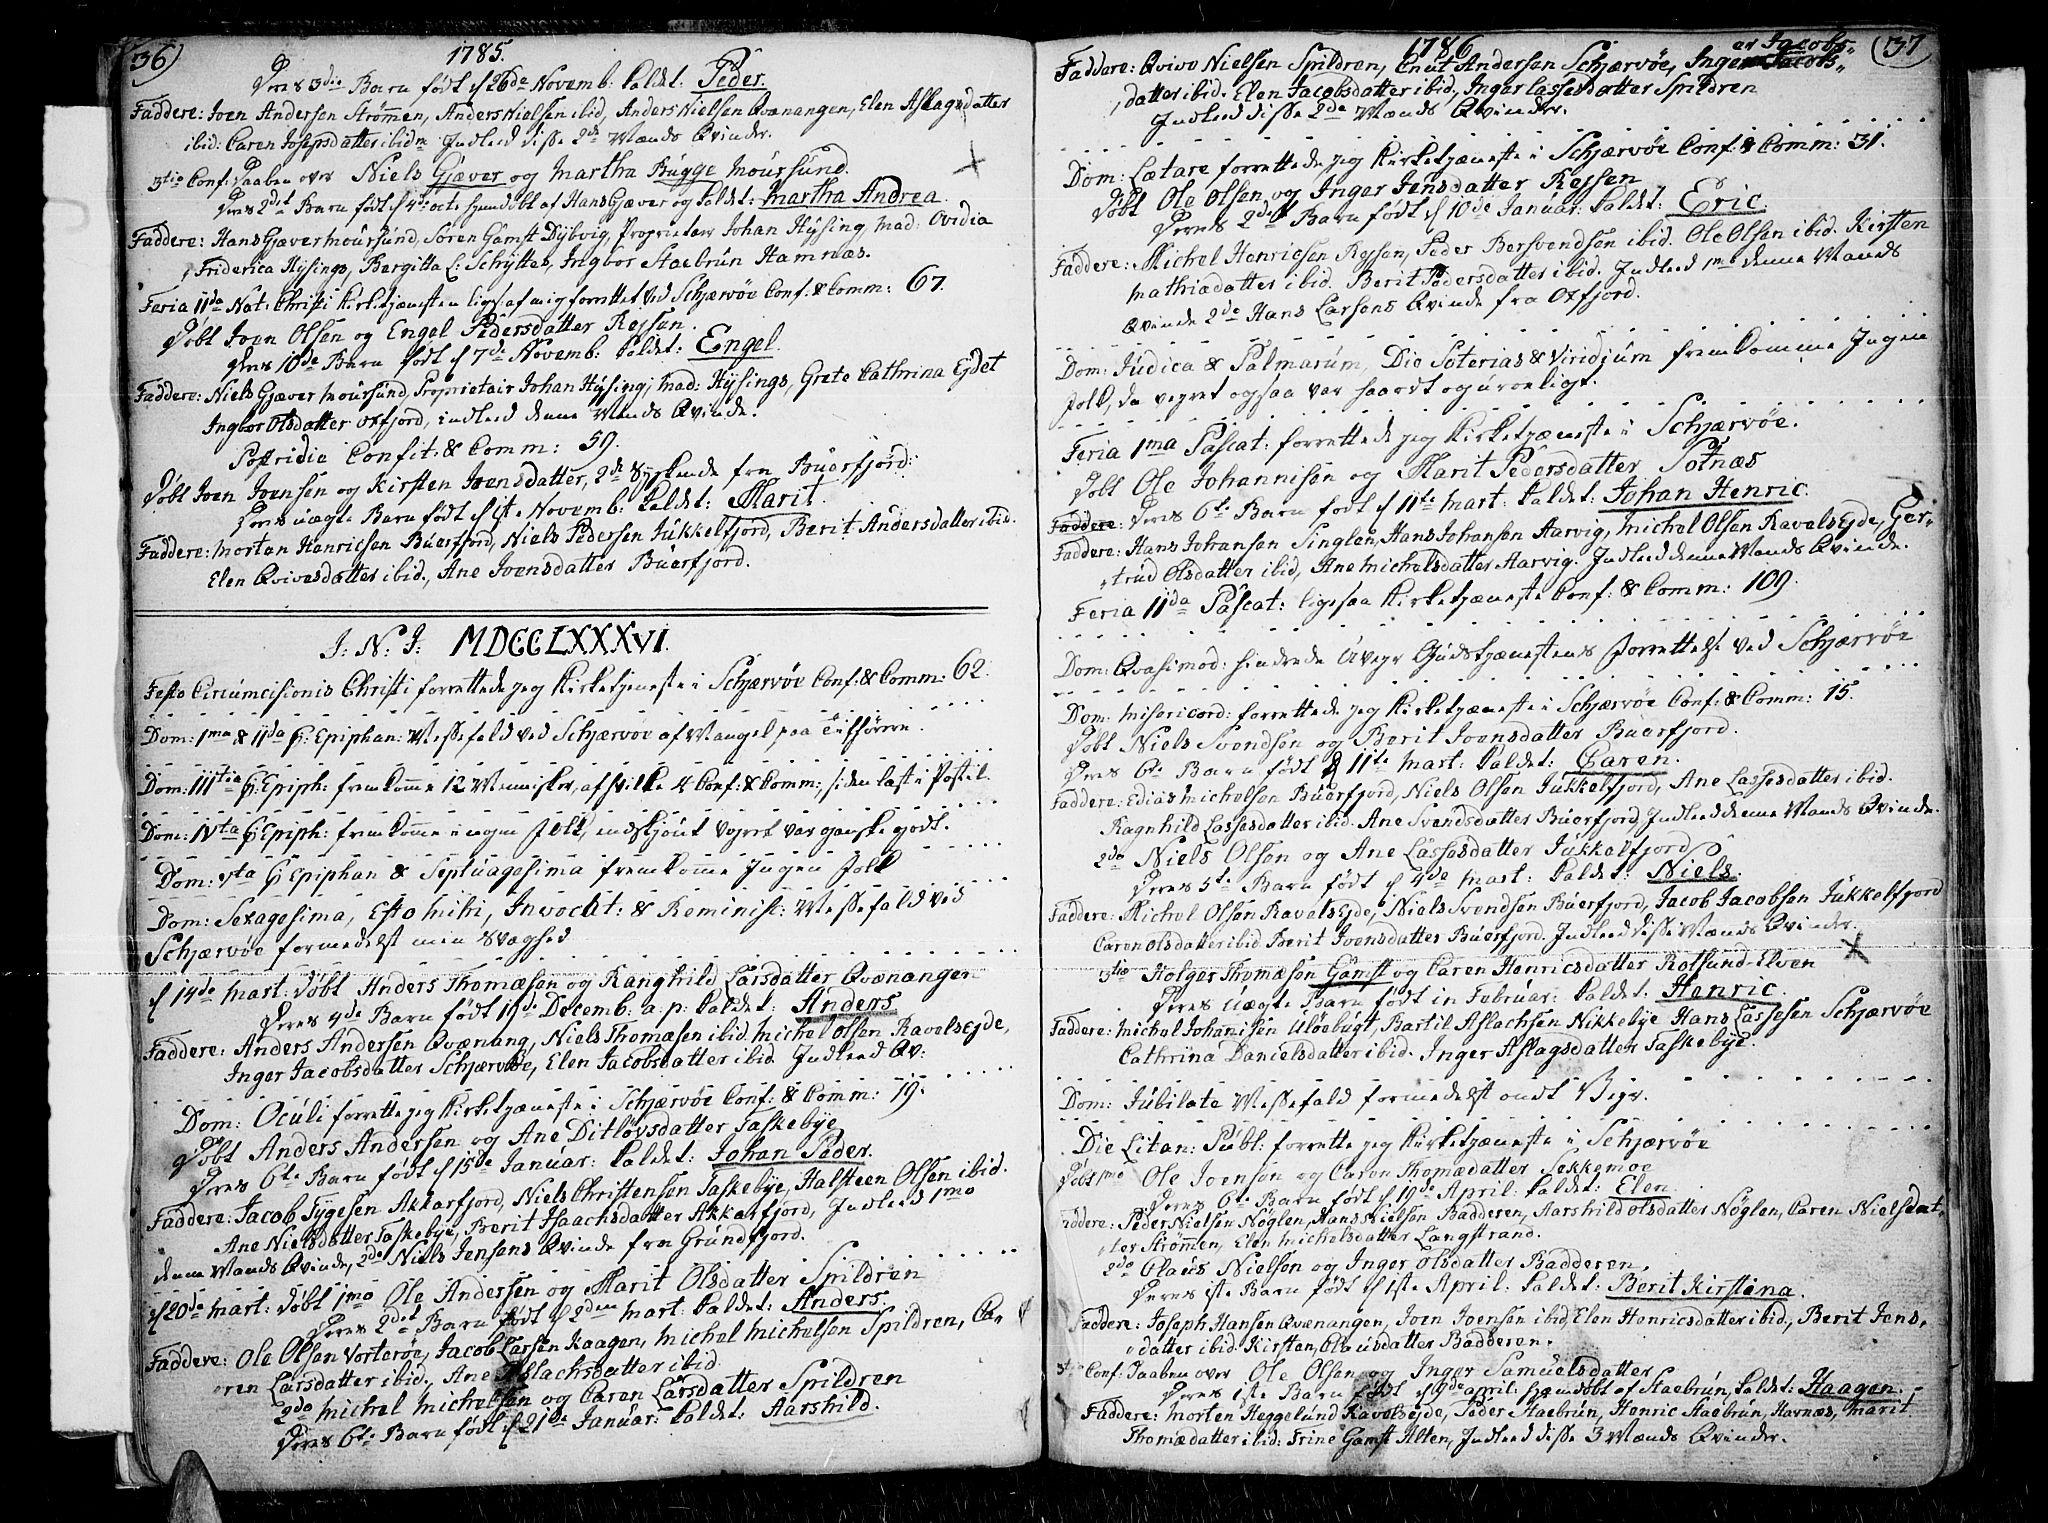 36)
1785.
Deres 3die Barn født d 26de Novemb: kaldet: Peder.
Faddere: Joen Andersen Strömmen, Anders Nielsen ibid, Anders Nielsen Qvænangen, Elen Aslagsdatter
ibid: Caren Josepsdatter ibidm Indleed disse 2de Mænds Qvinder.
3tio Conf: Daaben over Niels Gjæver og Martha Bugge Moursund.
Deres 2det Barn født d 4de octr hjemdöbt af Hans Gjæver og kaldet: Martha Andrea.
Faddere: Hans Gjæver Moursund, Sören Gamst Dÿbvig, Proprietær Johan Hÿsing, Mad: Ovidia
Friderica Hÿsings, Bergitta C: Schÿttes, Ingbor Staebrun Hamnæs.
Feria 11da Nat: Christi Kirketjenesten ligs. af mig forrettet ved Schjærvöe Conf: & Comm: 67.
Döbt Joen Olsen og Engel Pedersdatter Rejsen.
Deres 10de Barn født d 7de Novemb: kaldet: Engel.
Faddere: Niels Gjæver Moursund, Proprietair Johan Hÿsing, Mad: Hÿsings, Grete Cathrina Ejdet
Ingbor Olsdatter Oxfjord, indleed denne Mands Qvinde.
Postridie Confit: & Comm: 59.
Döbt Joen Joensen og Kirsten Joensdatter, 2de Sÿskende fra Buerfjord:
Deres uægte Barn født d 1ste Novemb: kaldet: Marit.
Faddere: Morten Henricsen Buerfjord, Niels Pedersen Jukkelfjord, Berit Andersdatter ibid.
Elen Qvivesdatter ibid., Ane Joensdatter Buerfjord.
J: N: J: MDCCLXXXVI.
Festo Circumcisionis Christi forrettede jeg Kirketjeneste i Schjærvöe Conf: & Comm: 62.
Dom: 1ma & 11da p: Epiphan: Messefald ved Schjærvöe af Mangel paa Tilhörere.
Dom: 111tia p: Epiph: fremkomme 12 Mennisker, af hvilke 4 Conf: & Comm:, siden læst i Postil.
Dom: 1Vta p: Epiph: fremkomme ingen Folk, endskjönt Vejret var ganske godt.
Dom: Vta p: Epiphan & Septuagesima fremkomme Ingen Folk
Dom: Sexagesima, Esto Mihi, Invocat: & Reminisc: Messefald ved
Schjærvöe formedelst min Svaghed
d 14de Mart: Döbt Anders Thomæsen og Ranghild Larsdatter Qvænangen
Deres 4de Barn født 19de Decemb: a: p: kaldet: Anders
Faddere: Anders Andersen Qvænang, Niels Thomæsen ibid. Michel Olsen Ravelsejde,
Inger Jacobsdatter Schjærvöe, Elen Jacobsdatter ibid Indleed Qv:
Dom: Oculi forrette jeg Kirketjæneste i Schjærvöe Conf: & Comm: 19.
Döbt Anders Andersen og Ane Ditlövsdatter Taskebÿe
Deres 6te Barn født d 15de Januar: kaldet: Johan Peder.
Faddere: Jacob Tÿgesen Akkarfjord, Niels Christensen Taskebÿe, Halsteen Olsen ibid.
Ane Nielsdatter Taskebÿe, Berit Isaachsdatter Akkarfjord, Indleed 1mo
denne Mands Qvinde, 2de Niels Jensens Qvinde fra Grundfjord.
d 20de Mart: döbt 1mo Ole Andersen og Marit Olsdatter Spildren
Deres 2det Barn født d 2den Mart: kaldet: Anders.
Faddere: Ole Olsen Vorteröe, Jacob Larsen Kaagen, Michel Michelsen Spildren, Ca-
ren Larsdatter ibid., Ane Aslachsdatter ibid
2do Michel Michelsen og Caren Larsdatter Spildren
Deres 6te Barn født d 21de Januar: kaldet: Aarshild.
1786
(37
er Jacobs
Faddere: Qvive Nielsen Spildren, Cnut Andersen Schjærvöe, Inger Jacobs-
datter ibid. Elen Jacobsdatter ibid, Inger Lassesdatter Spildren
Indleed disse 2de Mænds Qvinder.
Dom: Lætare forrettede jeg Kirketjæneste i Schjærvöe Conf: & Comm: 31.
Döbt Ole Olsen og Inger Jensdatter Rejsen
Deres 2det Barn født d 10de Januar: kaldet: Eric.
Faddere: Michel Henricsen Rejsen, Peder Bersvendsen ibid. Ole Olsen ibid. Kirsten
Mathiædatter ibid. Berit Pedersdatter ibid. Indleed 1mo denne Mands
Qvinde 2de Hans Larsens Qvinde fra Oxfjord.
Dom: Judica & Palmarum, Die Soterias & Viridium fremkomme Ingen
Folk, da vejret ogsaa var haardt og uroeligt.
Feria 1ma Pascat: forrettede jeg Kirketjæneste i Schjærvöe.
Döbt Ole Johannisen og Marit Pedersdatter Potnæs
Faddere: Deres 6te Barn födt d 11te Mart: kaldet: Johan Henric.
Faddere: Hans Johansen Singlen, Hans Johansen Aarvig, Michel Olsen Ravelsejde, Ger-
trud Olsdatter ibid, Ane Michelsdatter Aarvig. Indleed denne Mands Qvinde.
Feria 11da Pascat: ligesaa Kirketjæneste Conf: & Comm: 109.
Dom: Qvasimod: hindrede Uvejr Gudstjænestens Forrettelse ved Schjærvöe
Dom: Misericord: forrettede jeg Kirketjæneste i Schjærvöe Conf: & Comm: 15.
Döbt Niels Svendsen og Berit Joensdatter Buerfjord.
Deres 6te Barn født d 11te Mart: kaldet: Caren.
Faddere: Edias Michelsen Buerfjord, Niels Olsen Jukkelfjord, Ane Lassesdatter ibid.
Ragnhild Lassesdatter ibid. Ane Svendsdatter Buerfjord, Indleed denne Mands Qvinde.
2do Niels Olsen og Ane Lassesdatter Jukkelfjord
Deres 5te Barn født d 4de Mart: kaldet: Niels.
Faddere: Michel Olsen Ravelsejde, Niels Svendsen Buerfjord, Jacob Jacobsen Jukkelfjord
Caren Olsdatter ibid Berit Joensdatter Buerfjord. Indleed disse Mænds Qvinder.
3tio Holger Thomæsen Gamst og Caren Henricsdatter Rotsund-Elven
Deres uægte Barn født in Februar: kaldet: Henric.
Faddere: Michel Johanisen Ulöebugt, Bartil Aslachsen Nikkebÿe Hans Lassesen Schjærvöe
Cathrina Danielsdatter ibid. Inger Aslagsdatter Taskebÿe.
Dom: Jubilate Messefald formedelst ondt Vejr.
Die Litan: Publ: forrette jeg Kirketjæneste i Schjærvöe
Döbt 1mo Ole Joensen og Caren Thomædatter Sekkemoe
Deres 6te Barn født d 19de April: kaldet: Elen.
Faddere: Peder Nielsen Nöglen, Hans Nielsen Badderen, Aarshild Olsdatter Nöglen, Caren Nielsdat-
ter Strömmen, Elen Michelsdatter Langstrand.
2do Claus Nielsen og Inger Olsdatter Badderen.
Deres 1ste Barn født d 1ste April: kaldet: Berit Kirstina.
Faddere: Joseph Hansen Qvænangen, Joen Joensen ibid, Elen Henricsdatter ibid., Berit Jens-
datter ibid. Kirsten Clausdatter Badderen.
3tio Conf: Daaben over Ole Olsen og Inger Samuelsdatter
Deres 1ste Barn født d 9de April: hjemdöbt af Staebrun, kaldet: Haagen.
Faddere: Morten Heggelund Ravelsejde, Peder Staebrun, Henric Staebrun, Havnæs, Marit
Thomædatter ibid: Trine Gamst Alten, Indleed disse 3 Mænds Qvinder.